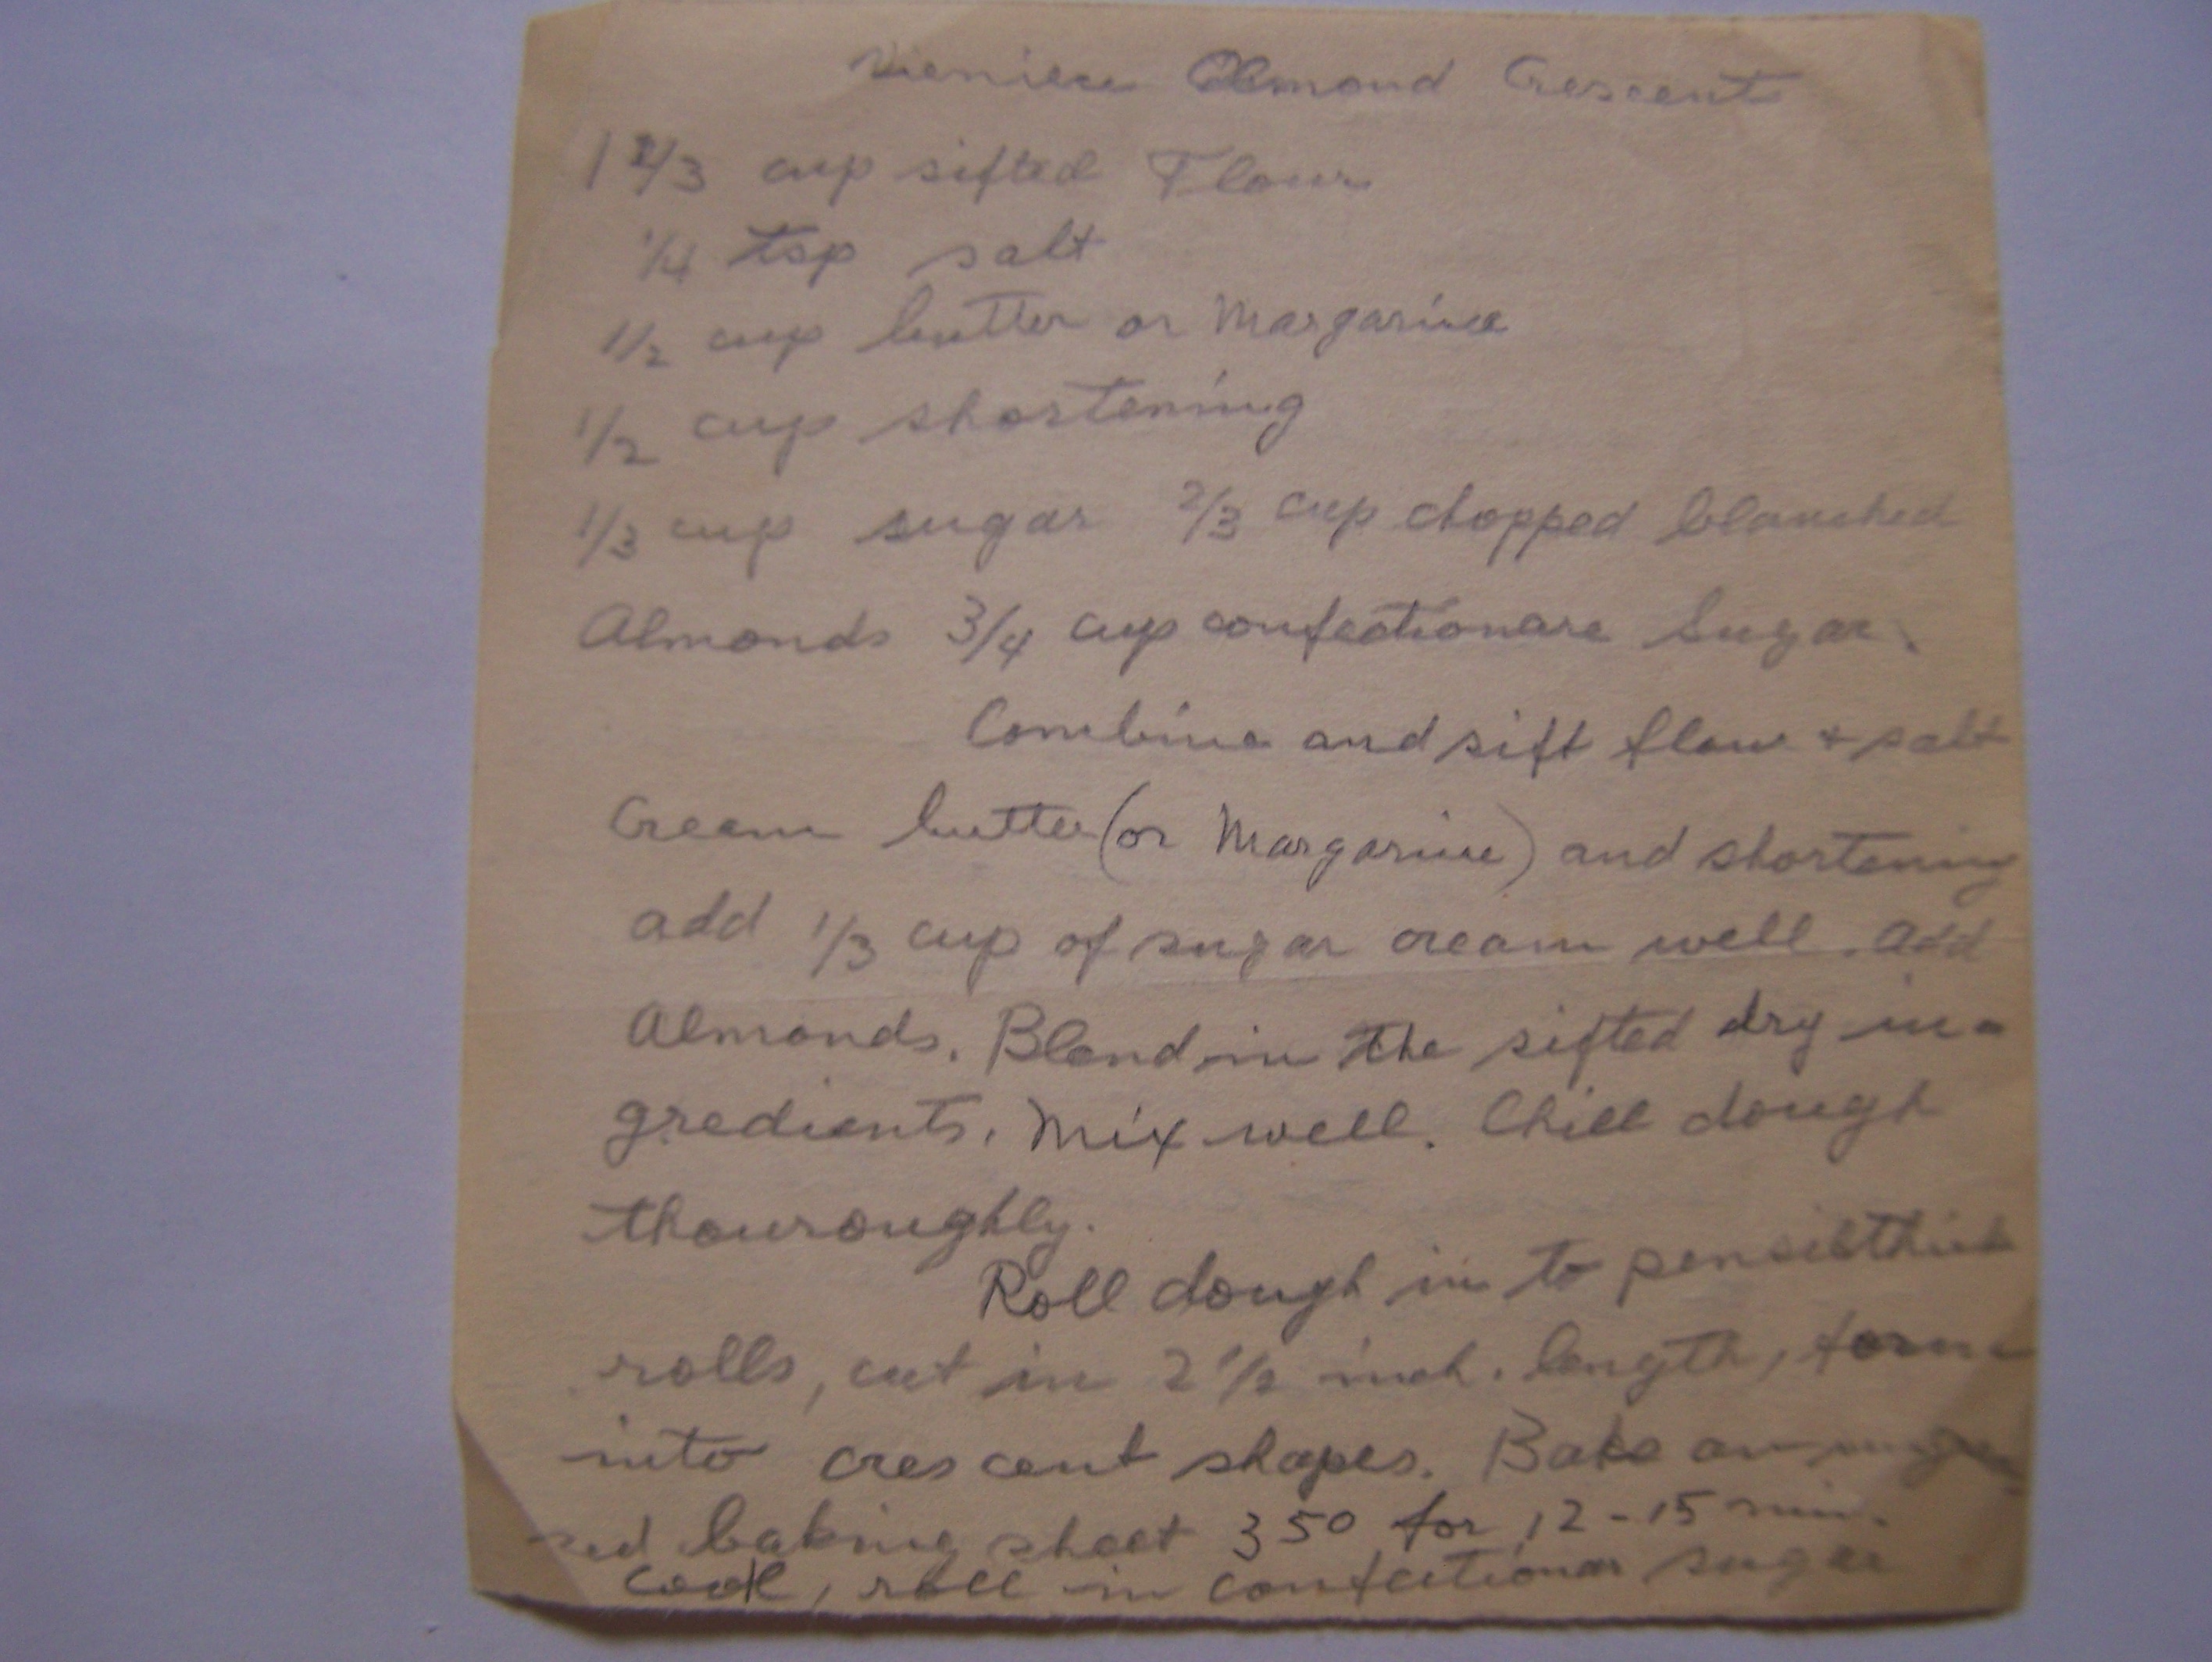 Almond Crescent
1 2/3 cup sifted Flour
1/4 tsp salt
1/2 cup butter or Margarine
1/2 cup shortening
1/3 cup sugar 2/3 cup chopped blanched
Almonds 3/4 cup confectionare Sugar.
Combine and sift flour + salt
Cream butter (or Margarine) and shortening
add 1/3 cup of sugar cream well. add
Almonds. Blend in the sifted dry in-
gredients. Mix well. Chill dough
thouroughly.
Roll dough in to pencilthick
rolls, cut in 2 1/2 inch. length, form
into crescent shapes. Bake on ungrea-
sed baking sheet 350 for 12-15 min.
cool, roll in confectionar sugar